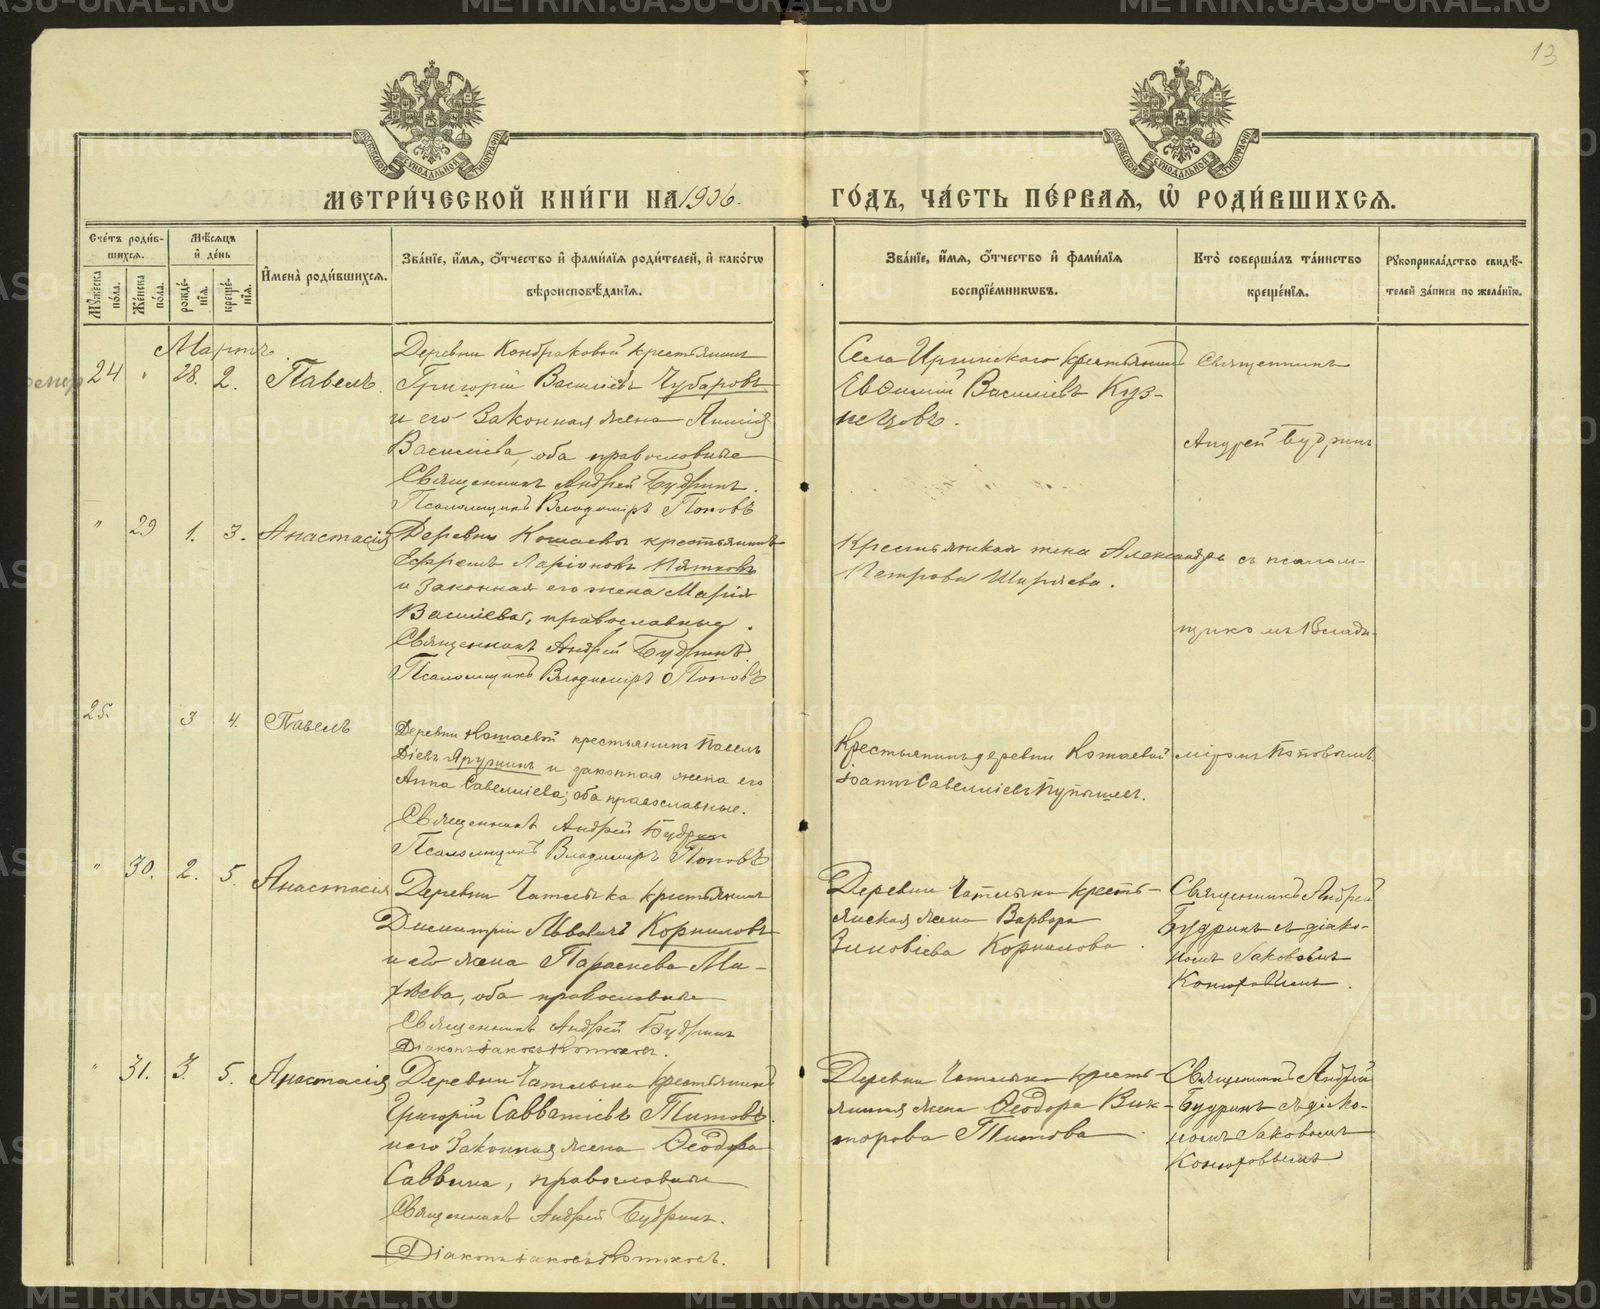 13
МЕТРИ́ЧЕСКОЙ КНИ́ГИ НА 1906.
ГО́ДЪ, ЧА́СТЬ ПЕ́РВАЯ, Ѡ҆ РОДИ́ВШИХСѦ.
Сче́тъ роди́в-
шихся.
Мѣ́сяцъ
и҆ де́нь
Му́жеска
по́ла.
Же́нска
по́ла.
рожде́-
нїѧ.
креще́-
нїѧ.
И҆мена̀ роди́вшихсѧ.
Зва́нїе, и҆́мѧ, ѻ҆́тчество и҆ фами́лїѧ роди́телей, и҆ како́гѡ
вѣроисповѣ́данїѧ.
Зва́нїе, и҆́мѧ, ѻ҆́тчество и҆ фами́лїѧ
воспрїе́мникѡвъ.
Кто̀ соверша́лъ та́инство
креще́нїѧ.
Рꙋкоприкла́дство свидѣ́-
телей за́писи по жела́нїю.
Мартъ.
24 " 28. 2. Павелъ.
Деревни Кондраковой крестьянинъ
Григорій Василіевъ Чубаровъ
и его законная жена Анисія
Василіева, оба православные
Священникъ Андрей Будринъ.
Псаломщикъ Владиміръ Поповъ
Села Иргинскаго крестьянинъ
Евѳимій Василіевъ Куз-
нецовъ.
Священникъ
Андрей Будринъ
" 29 1. 3. Анастасія
Деревни Кошаевой крестьянинъ
Ефремъ Ларіоновъ Пятковъ
и законная его жена Марія
Василіева, православныя.
Священникъ Андрей Будринъ
Псаломщикъ Владиміръ Поповъ
Крестьянская жена Александра
Петрова Ширяева.
съ псалом-
щикомъ Влади-
25. 3 4. Павелъ
Деревни Кошаевой крестьянинъ Павелъ
Діевъ Ярушинъ и законная жена его
Анна Савелліева; оба православные.
Священникъ Андрей Будринъ
Псаломщикъ Владиміръ Поповъ
Крестьянинъ деревни Кошаевой
Іоаннъ Савелліевъ Пупышев.
міромъ Поповымъ.
" 30. 2. 5. Анастасія
Деревни Чатлыка крестьянинъ
Димитрій Львовичъ Корниловъ
и его жена Параскева Ми-
хѣева, оба православные
Священникъ Андрей Будринъ
Діаконъ Іаковъ Конюховъ.
Деревни Чатлыка кресть-
янская жена Варвара
Зиновіева Корнилова.
Священникъ Андрей
Будринъ съ діако-
номъ Іаковомъ
Конюховымъ.
" 31. 3. 5. Анастасія
Деревни Чатлыка крестьянинъ
Григорій Савватіевъ Титовъ
и его законная жена Ѳеодора
Саввина, православные
Священникъ Андрей Будринъ.
Діаконъ Іаковъ Конюховъ.
Деревни Чатлыка кресть-
янская жена Ѳеодора Вик-
торова Титова.
Священникъ Андрей
Будринъ съ діако-
номъ Іаковомъ
Конюховымъ